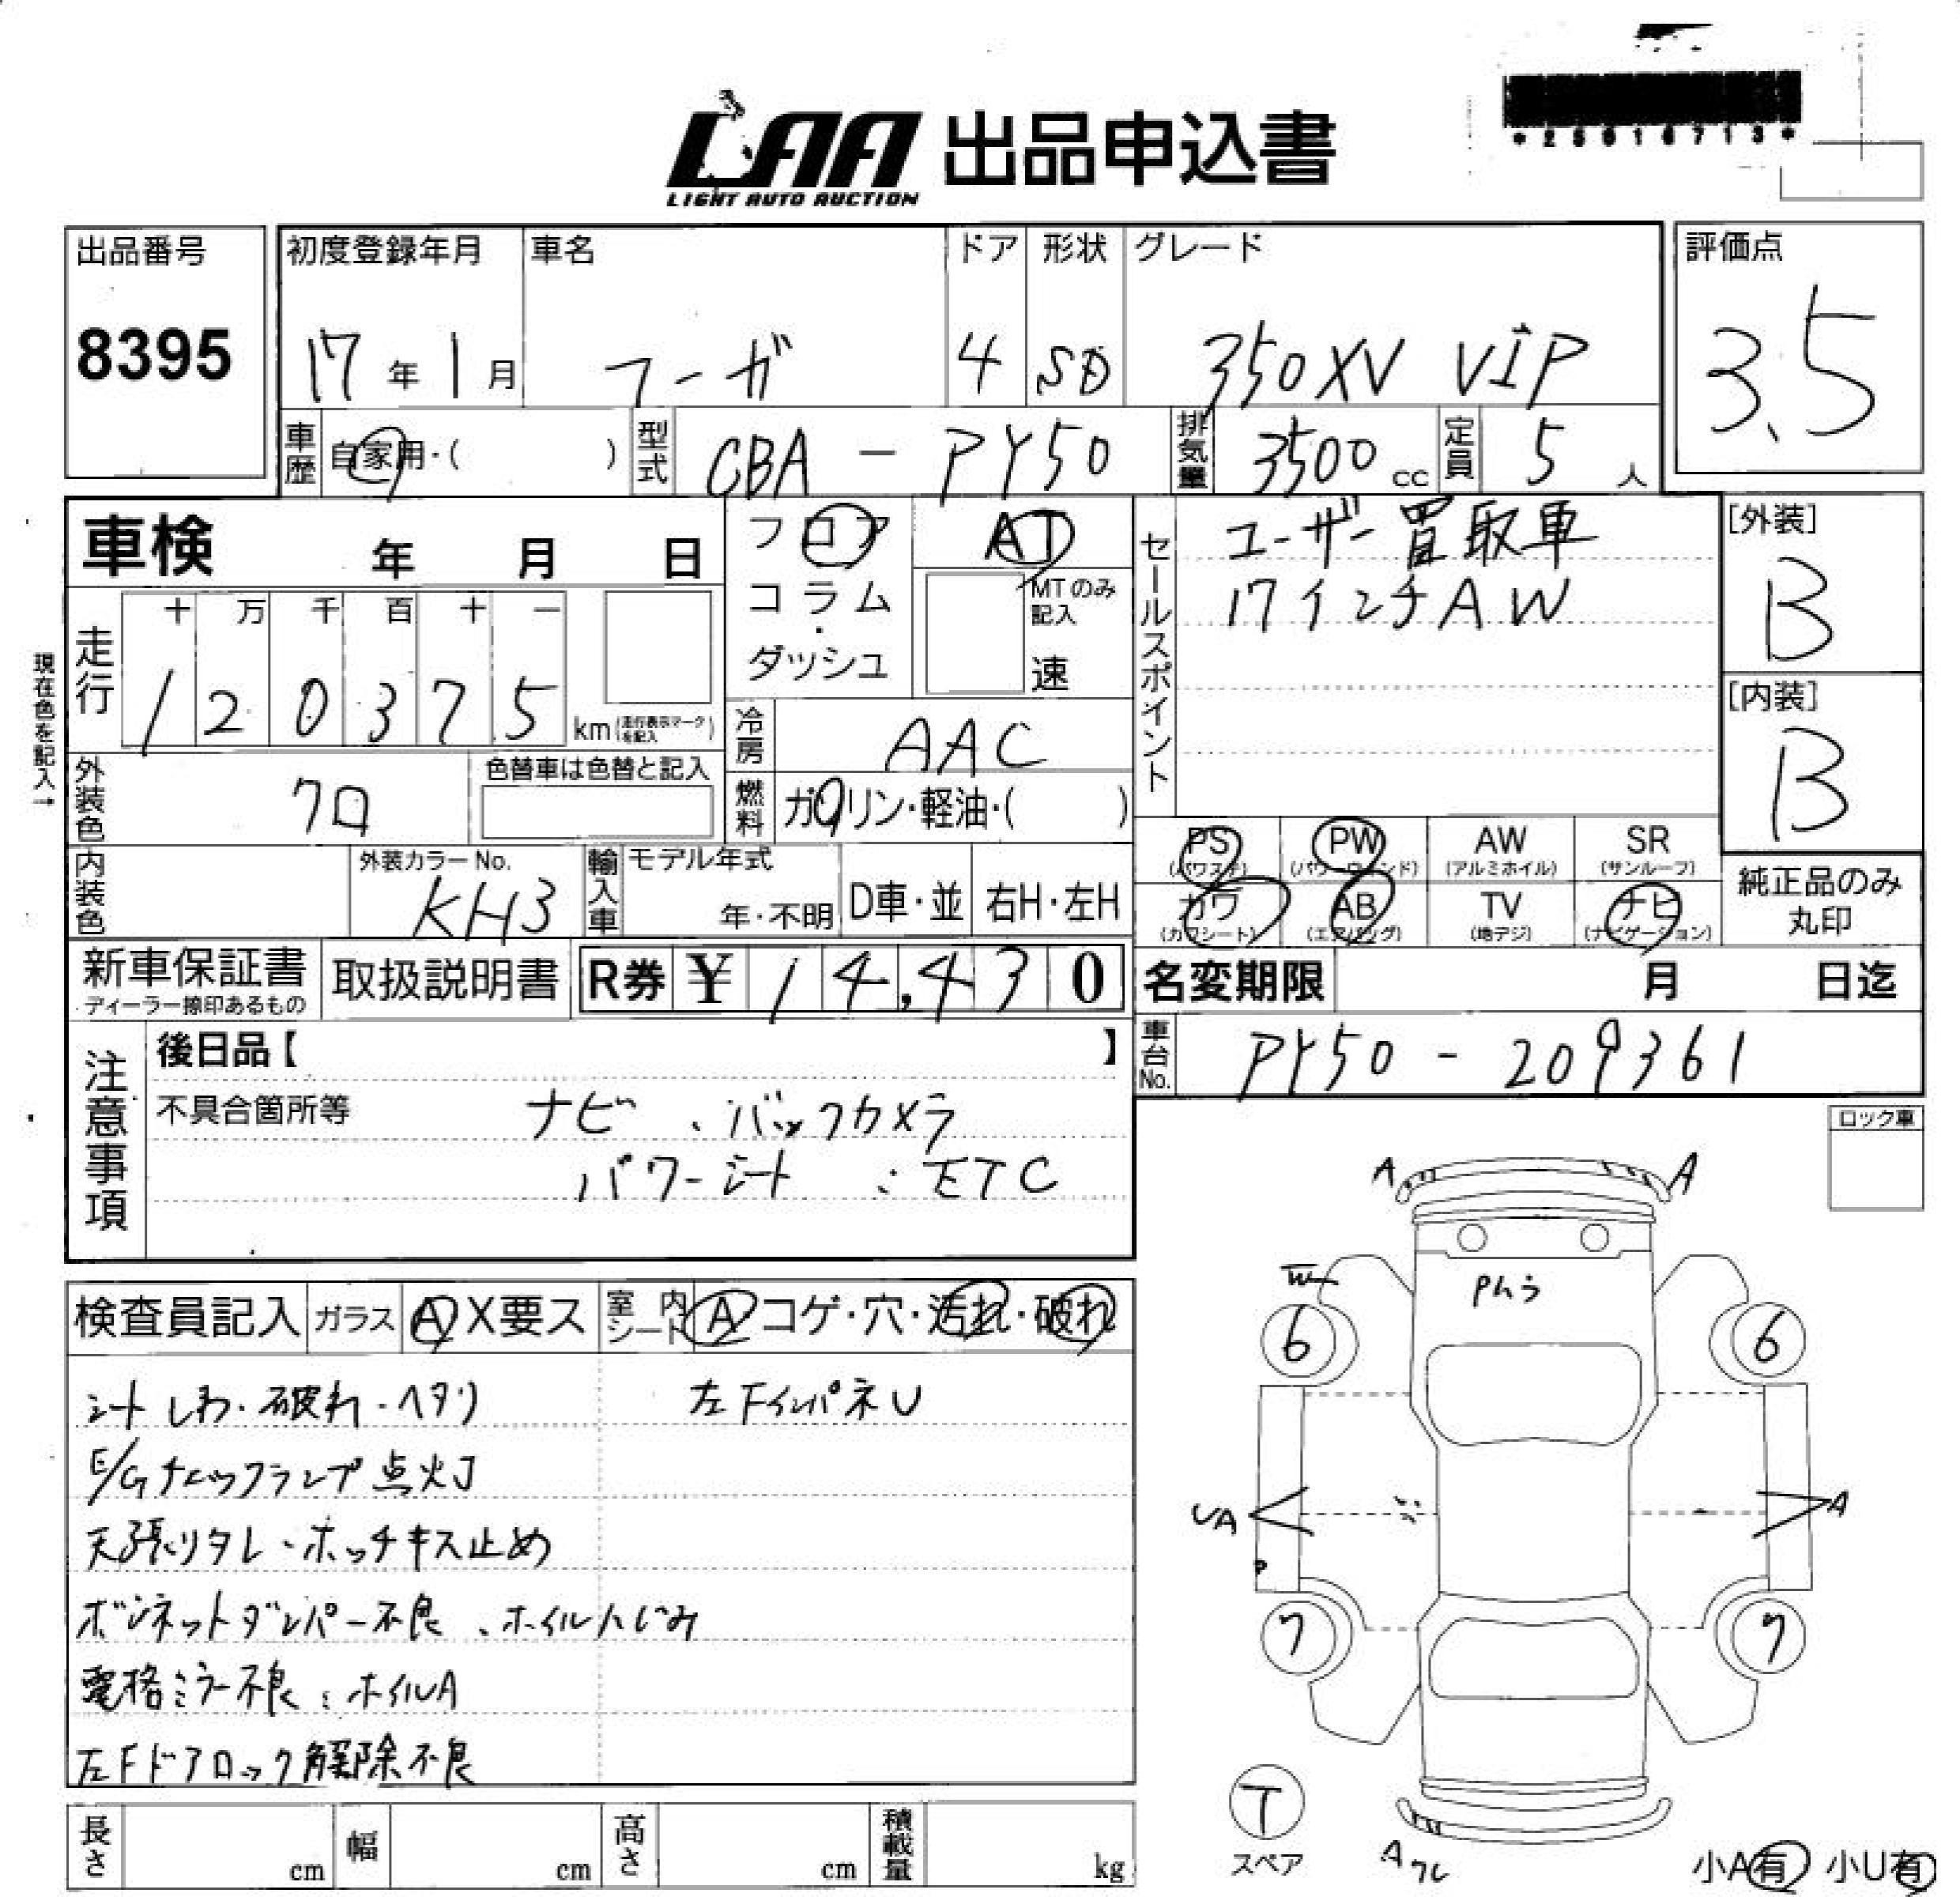 LAA 出品申込書
LIGHT AUTO AUCTION
*25016713*
出品番号
8395
初度登録年月
17年1月
車名
フーガ
ドア
4
形状
SD
グレード
350XV VIP
評価点
3.5
車歴 自家用・( )
型式 CBA - PY50
排気量 3500cc
定員 5人
車検 年 月 日
フロア
コラム・
ダッシュ
AT
MTのみ
記入
速
セールスポイント
ユーザー買取車
17インチAW
[外装]
B
[内装]
B
現在色を記入→
走行
十 万 千 百 十 一
1 2 0 3 7 5 km(走行表示マークを記入)
冷房 AAC
外装色 クロ
色替車は色替と記入
燃料 ガソリン・軽油・( )
PS (パワステ)
PW (パワーウィンド)
AW (アルミホイル)
SR (サンルーフ)
カワ (カワシート)
AB (エアバッグ)
TV (地デジ)
ナビ (ナビゲーション)
純正品のみ
丸印
内装色
外装カラーNo.
KH3
輸入車
モデル年式
年・不明
D車・並
右H・左H
新車保証書
ディーラー捺印あるもの
取扱説明書
R券 ¥14,430
名変期限 月 日迄
車台No. PY50 - 209361
注意事項
後日品【 】
不具合箇所等
ナビ 、バックカメラ
パワーシート 、ETC
ロック車
検査員記入
ガラス A X要ス
室内シート A コゲ・穴・汚れ・破れ
シートしわ・破れ・ヘタリ
左FインパネU
E/Gチェックランプ点灯
天張りタレ・ホッチキス止め
ボンネットダンパー不良、ホイルにじみ
電格ミラー不良、ホイルA
左Fドアロック解除不良
長さ cm
幅 cm
高さ cm
積載量 kg
A A
W
Pムラ
6 6
UA A
P
7 7
T
スペア
A ワレ
小A有 小U有